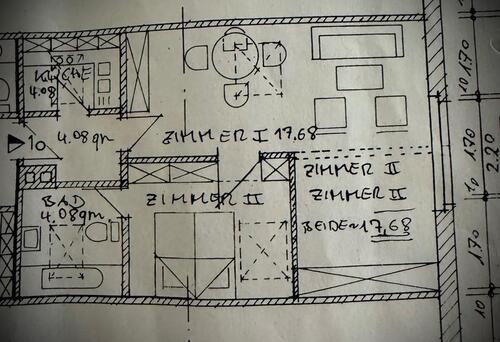 KÜCHE
4.08
10
4.08 qm
ZIMMER I 17,68
BAD
4.08 qm.
ZIMMER II
ZIMMER II
ZIMMER II
BEIDE~17,68
10
1.70
10
1.70
10
1.70
10
220